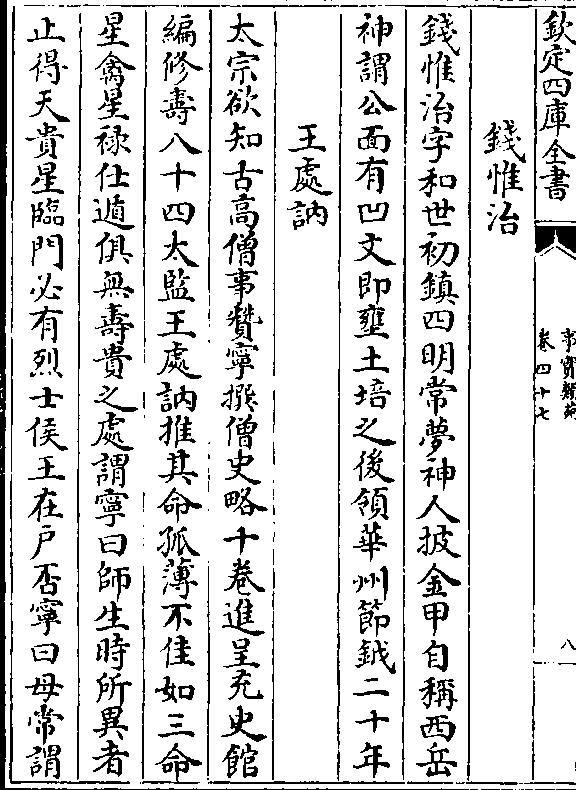 欽定四庫全書
事實類苑
卷四十七
八
錢惟治
錢惟治字和世初鎮四明常夢神人披金甲自稱西岳
神謂公面有凹文即壅土培之後領華州節鉞二十年
王處訥
太宗欲知古高僧事贊寧撰僧史略十卷進呈充史館
編修壽八十四太監王處訥推其命孤薄不佳如三命
星禽星禄仕遁俱無壽貴之處謂寧曰師生時所異者
止得天貴星臨門必有烈士侯王在戶否寧曰母常謂